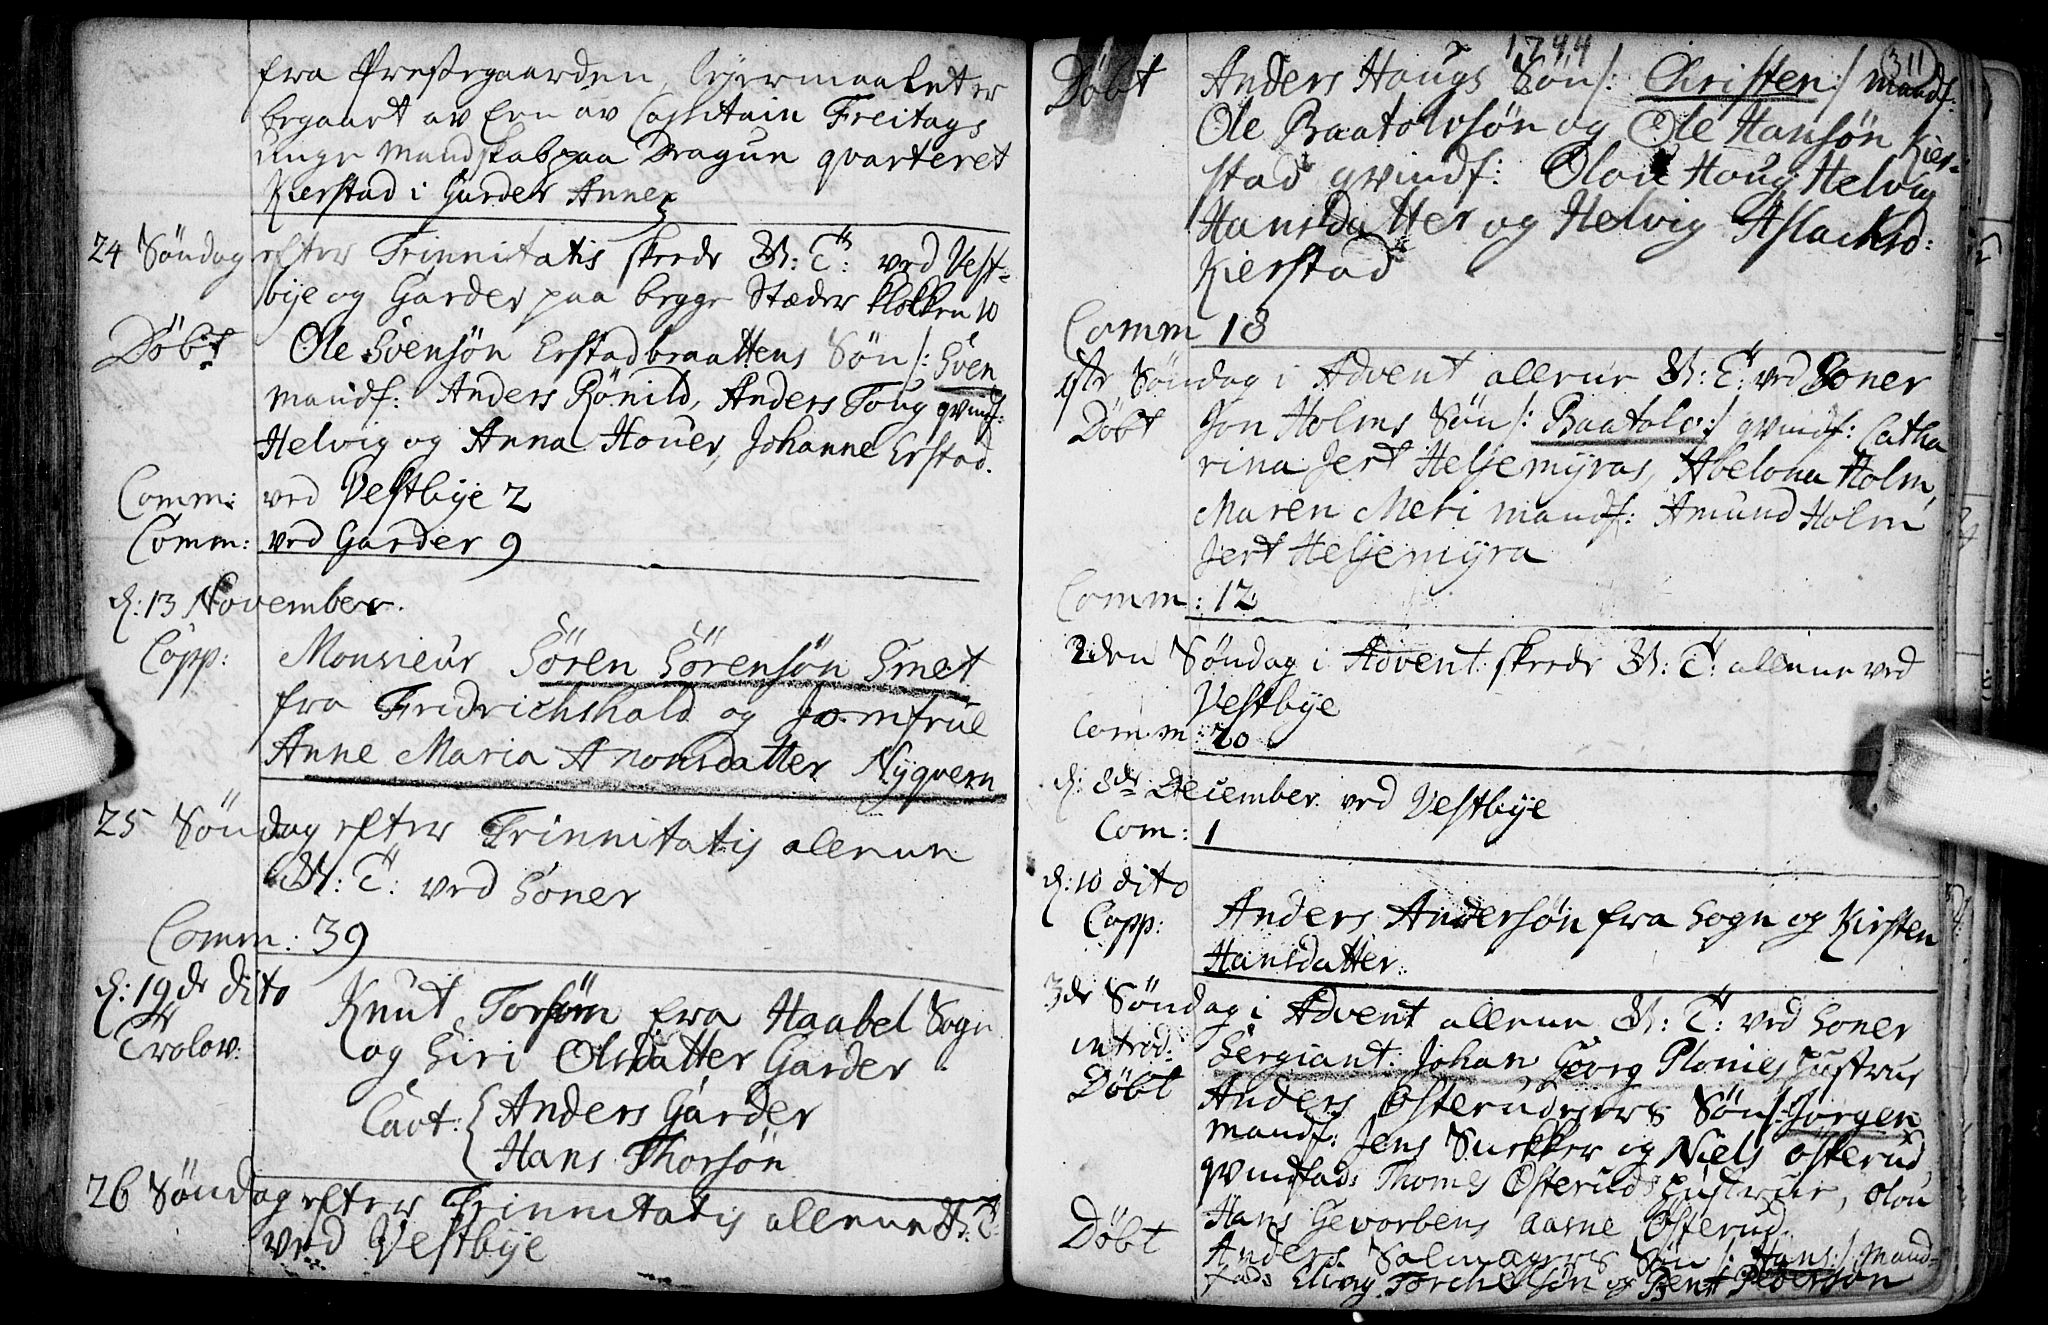 fra Prestegaarden, leyermaalet er
begaaet av Een av Capitain Freitags
unge mandskab paa Dragun qvarteret
Kierstad i Garder Annex
24 Söndag efter Trinnitatis skede G: T: ved Vest-
bye og Garder paa begge Stæder klokken 10
Döbt Ole Svensön Erstadbraattens Sön /: Sven
mandf: Anders Rönild, Anders Toug qvindf:
Helvig og Anna Houer, Johanne Erstad.
Comm: ved Vestbye 2
Comm: ved Garder 9
d: 13 November.
Copp: Monsieur Sören Sörensön Smet
fra Fridrichshald og Jomfrue
Anne Maria Aronsdatter Nyqvern
25 Söndag efter Trinnitatis allene
G: T: ved Soner
Comm: 39
d: 19de dito Knut Torsön fra Haabel Sogn
Trolov: og Siri Olsdatter Garder
Cavt: { Anders Garder
Hans Thorsön
26 Söndag efter Trinnitatis allene G: T:
ved Vestbye
1744
311
Döbt Anders Haugs Sön /: Christen :/ mandf:
Ole Baatolvsön og Ole Hansön Kier-
stad qvindf: Olou Haug Helvig
Hansdatter og Helvig Aslacksd:
Kierstad
Comm 18
1ste Söndag i Advent allene G: T: ved Soner
Döbt Jon Holms Sön /: Baatolv :/ qvindf: Catha
rina Jert Heljemyras, Abelona Holm,
Maren Meri mandf: Amund Holm
Jert Heljemyra
Comm: 12
2den Söndag i Advent skede G: T: allene ved
Vestbye
Comm: 20
d: 8de December ved Vestbye
Com: 1
d: 10 dito
Copp: Anders Andersön fra Sogn og Kirsten
Hansdatter
3de Söndag i Advent allene G: T: ved Soner
introd: Sergiant Johan Georg Plonies hustrue
Döbt Anders Osterudeiers Sön /: Jörgen
mandf: Jens Snekker og Niels Osterud
qvindfad: Thomes Osteruds hustrue, Olou
Hans Aasne Osterud
Döbt Anders Solmagers Sön /: Hans :/ Mand-
fad: Ellvog Torchelsön og Bent Pedersön